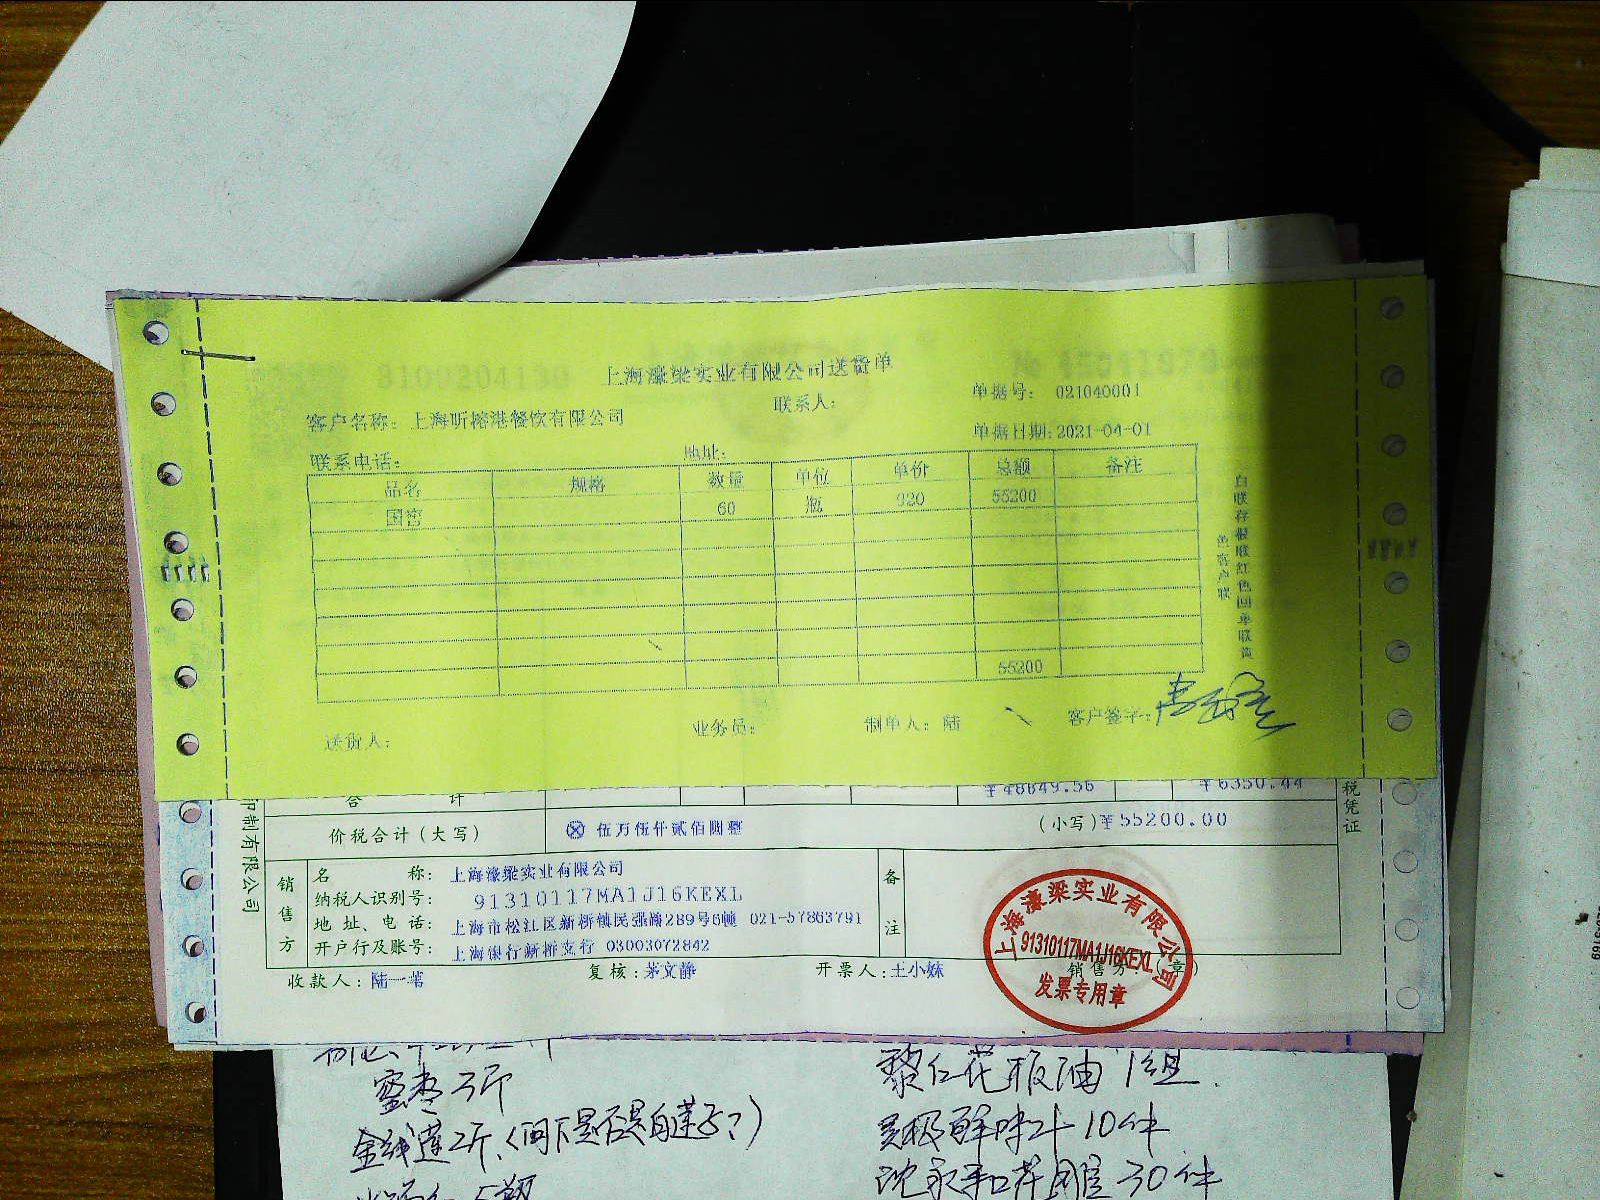 上海濠梁实业有限公司送货单
单据号: 021040001
客户名称: 上海昕榕港餐饮有限公司
联系人:
单据日期: 2021-04-01
联系电话:
地址:
品名 规格 数量 单位 单价 总额 备注
国窖 60 瓶 920 55200
55200
送货人:
业务员:
制单人: 陆
客户签字:
合 计 ¥48849.56 ¥6350.44
价税合计(大写) ⊗ 伍万伍仟贰佰圆整 (小写)¥55200.00
销售方
名 称: 上海濠梁实业有限公司
纳税人识别号: 91310117MA1J16KEXL
地 址、电 话: 上海市松江区新桥镇民强路289号6幢 021-57863791
开户行及账号: 上海银行新桥支行 03003072842
备注
收款人: 陆一苇
复核: 茅文静
开票人: 王小妹
销售方:(章)
上海濠梁实业有限公司
91310117MA1J16KEXL
发票专用章
印制有限公司
税凭证
蜜枣3斤
金钱莲2斤
黎仁花板油 1组.
10件
30件